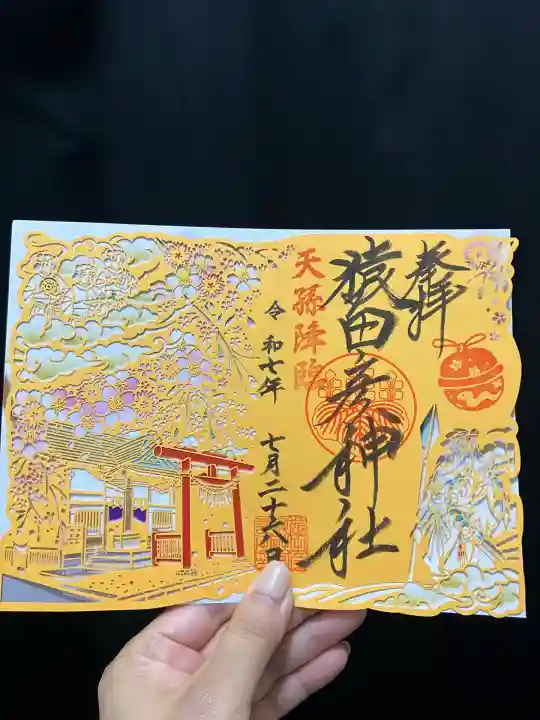 奉拝
猿田彦神社
天孫降臨
令和七年 七月二十六日